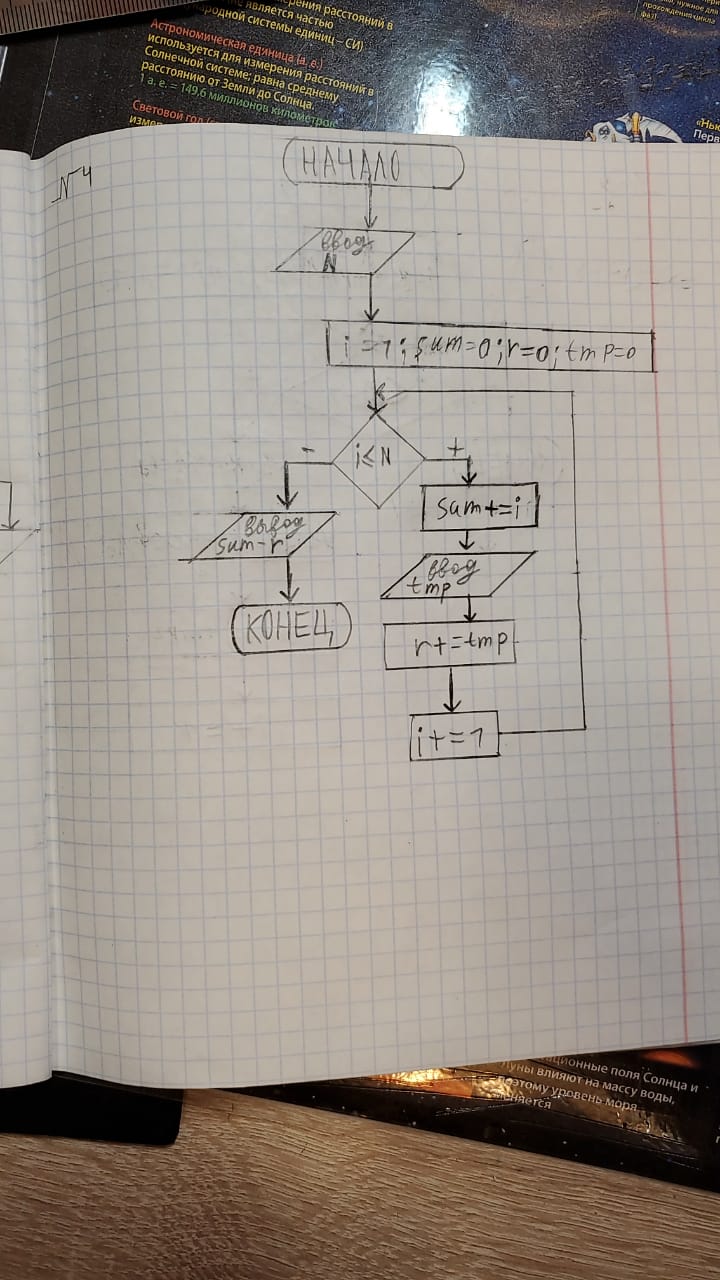 рения расстояний в
е является частью
родной системы единиц – СИ)
Астрономическая единица (а. е.)
используется для измерения расстояний в
Солнечной системе: равна среднему
расстоянию от Земли до Солнца.
1 а. е. = 149,6 миллионов километров
Световой год
нужное для
прохождения цикла
фаз!
«Нь
Перв
№4
НАЧАЛО
ввод
N
i=1; sum=0; r=0; tmp=0
i≤N
-
+
sum+=i
вывод
sum-r
ввод
tmp
КОНЕЦ
r+=tmp
i+=1
ционные поля Солнца и
Луны влияют на массу воды,
поэтому уровень моря
меняется